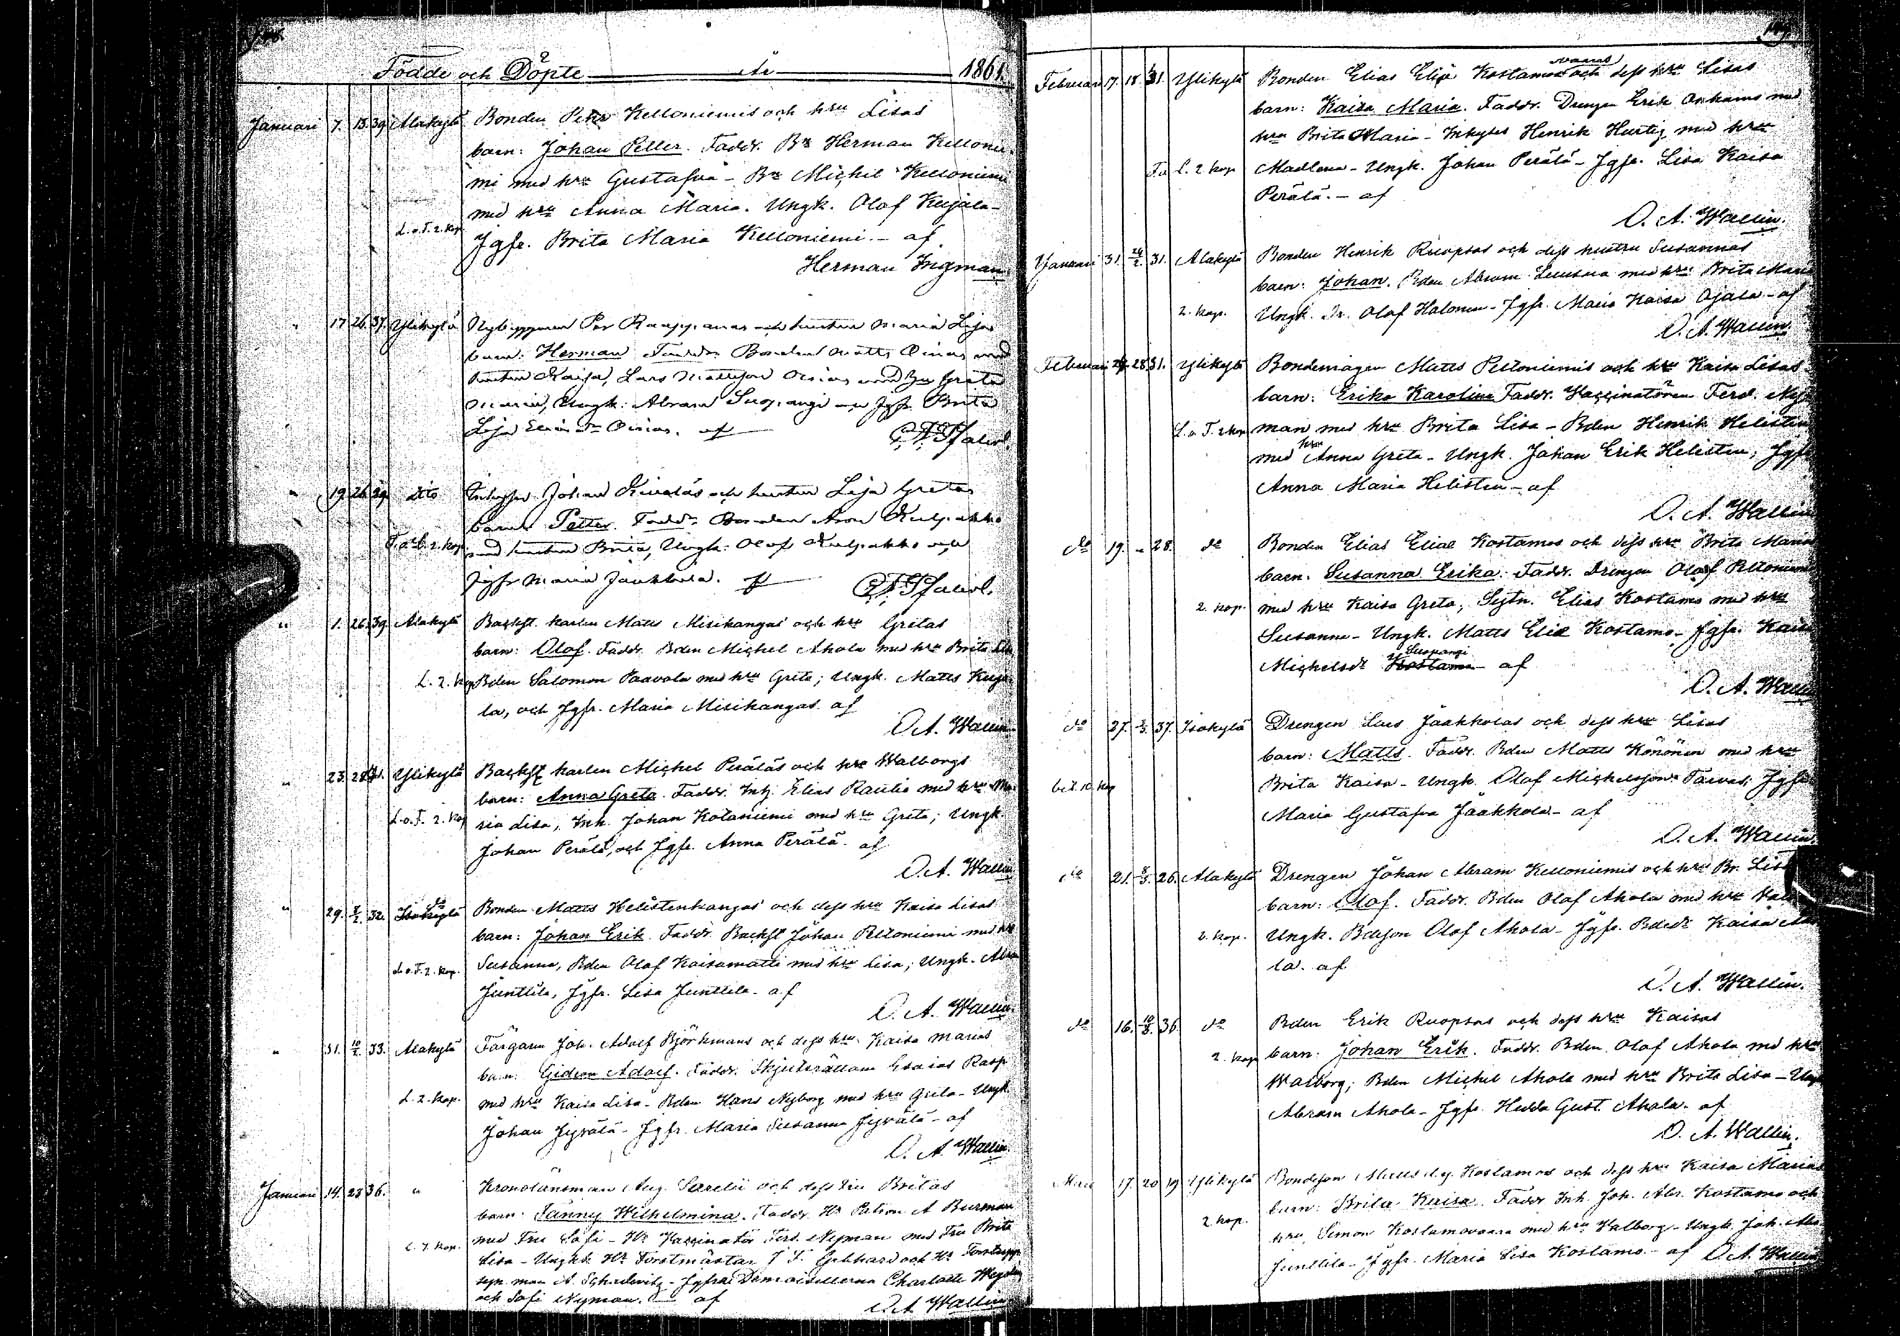 Födde och Döpte år 1861.
Januari 7. 13. 39 Alakylä Bonden Petr Kelloniemis och hru Lisas
barn: Johan Petter. Faddr. Bn Herman Kellonie-
mi med hru Gustafva - Bn Michel Kelloniemi
med hru Anna Maria. Ungk. Olof Kujala -
L. o. T. 2. kop. Jgfr. Brita Maria Kelloniemi. - af.
Herman Ingman
" 17 26. 37. Ylikylä Nybyggaren Per och hustru Maria Lisas
barn: Herman Faddr. Bonden Matts Oinas med
hustru Kaisa, Lars Mattsson Oinas med hu Greta
Maria, Ungk: Abram och Jgfr Brita
Lisa Oinas. af
" 19. 26. 29. Dito Inhyses Johan Kiveläs och hustru Lisa Gretas
barn Petter. Faddr Bonden Aron
T. o. L. 2. kop. med hustru Brita, Ungk: Olof och
Jgfr Maria Jaakkola. af
" 1. 26. 39. Alakylä Backst. karlen Matts Misikangas och hru Gretas
barn: Olof. Faddr. Bden Michel Ahola med hru Brita
L. 2. kop. Bden Salomon Paavola med hru Greta; Ungk. Matts Kuja-
la, och Jgfr. Maria Misikangas. af
O. A. Wallin.
" 23. 28. Ylikylä Backst karlen Michel Peräläs och hru Walborgs
barn: Anna Greta. Faddr. Inh. Elias Rautio med hru Ma-
L. o. T. 2. kop ria Lisa, Inh. Johan Kotaniemi med hru Greta; Ungk.
Johan Perälä, och Jgfr. Anna Perälä. af
O. A. Wallin.
" 29. 3/2. 32. Isokylä Bonden Matts Helistenkangas och dess hru Kaisa Lisas
barn: Johan Erik. Faddr. Backst Johan Peltoniemi med hru
L. o. T. 2. kop. Susanna, Bden Olof Kaisamatti med hru Lisa; Ungk. Abram
Junttila, Jgfr. Lisa Junttila. af
O. A. Wallin.
" 31. 10/2. 33. Alakylä Färgaren Joh. Adolf Björkmans och dess hru Kaisa Marias
barn: Gideon Adolf. Faddr. Skjutsrättaren Esaias
L. 2. kop. med hru Kaisa Lisa - Bden Hans Nyborg med hru Greta - Ungk.
Johan Jyrälä - Jgfr. Maria Susanna Jyrälä - af
O. A. Wallin.
Januari 14. 28 36. " Kronolänsman Aug. Sarelii och dess fru Britas
barn: Fanny Wilhelmina. Faddr. Hr Patron A Burman
L. 2. kop. med Fru Sofi - Hr Vaccinatör Ferd. Nyman med Fru Brita
Lisa - Ungk. Hr Forstmästar F. T. Gebhard och Hr
A. - Jgfrar Demoisellerna Charlotte
och Sofi Nyman. af
O. A. Wallin
Februari 17. 18. 31. Ylikylä Bonden Elias Elia Kostamovaaras och dess hru Lisas
barn: Kaisa Maria. Faddr. Drengen Erik Onkamo med
hru Brita Maria - Inhyses Henrik Hurtig med hru
T. o. L. 2 kop Madlena - Ungk. Johan Perälä - Jgfr. Lisa Kaisa
Perälä. - af
O. A. Wallin.
Januari 31. 24/2. 31. Alakylä Bonden Henrik Ruopsas och dess hustru Susannas
barn: Johan. Bden Abram Luusua med hru Brita Maria
2. kop. Ungk. Dr. Olof Halonen - Jgfr. Maria Kaisa Ojala - af
O. A. Wallin
Februari 24. 28 31. Ylikylä Bondemågen Matts Peltoniemis och hru Kaisa Lisas
barn: Erika Karolina Faddr. Vaccinatören Ferd. Ny-
L. o. T. 2 kop man med hru Brita Lisa - Bden Henrik Helisten
med hru Anna Greta - Ungk. Johan Erik Helisten; Jgfr
Anna Maria Helisten - af
O. A. Wallin
do 19. " 28. do Bonden Elias Eliae Kostamos och dess hru Brita Marias
barn. Susanna Erika. Faddr. Drengen Olof Peltoniemi
2. kop. med hru Kaisa Greta; Sytn. Elias Kostamo med hru
Susanna - Ungk. Matts Eliæ Kostamo - Jgfr. Kaisa
Michelsdr Suopangi af
O. A. Wallin
do 27. 3/3. 37. Isokylä Drengen Lars Jaakkolas och dess hru Lisas
barn: Matts. Faddr. Bden Matts Könönen med hru
bet. 10. kop Brita Kaisa - Ungk. Olof Michelsson Taivas; Jgfr
Maria Gustafva Jaakkola - af
O. A. Wallin.
do 21. 3/3. 26. Alakylä Drengen Johan Abram Kelloniemis och hru Br. Lisas
barn: Olof. Faddr. Bden Olof Ahola med hru
2. kop. Ungk. Bdeson Olof Ahola - Jgfr. Bdedr Kaisa Aho-
la. af
O. A. Wallin.
do 16. 10/3. 36. do Bden Erik Ruopsas och dess hru Kaisas
2. kop barn: Johan Erik. Faddr. Bden Olof Ahola med hru
Walborg; Bden Michel Ahola med hru Brita Lisa - Ungk
Abram Ahola - Jgfr. Hedda Gust. Ahola - af
O. A. Wallin.
17. 20 19 Ylikylä Bondeson Matts Kostamos och dess hru Kaisa Marias
barn: Brita Kaisa. Faddr Inh. Joh. Abr. Kostamo och
2 kop. hru, Simon Kostamovaara med hru Valborg - Ungk. Joh. Abr.
Junttila - Jgfr. Maria Lisa Kostamo - af O. A. Wallin